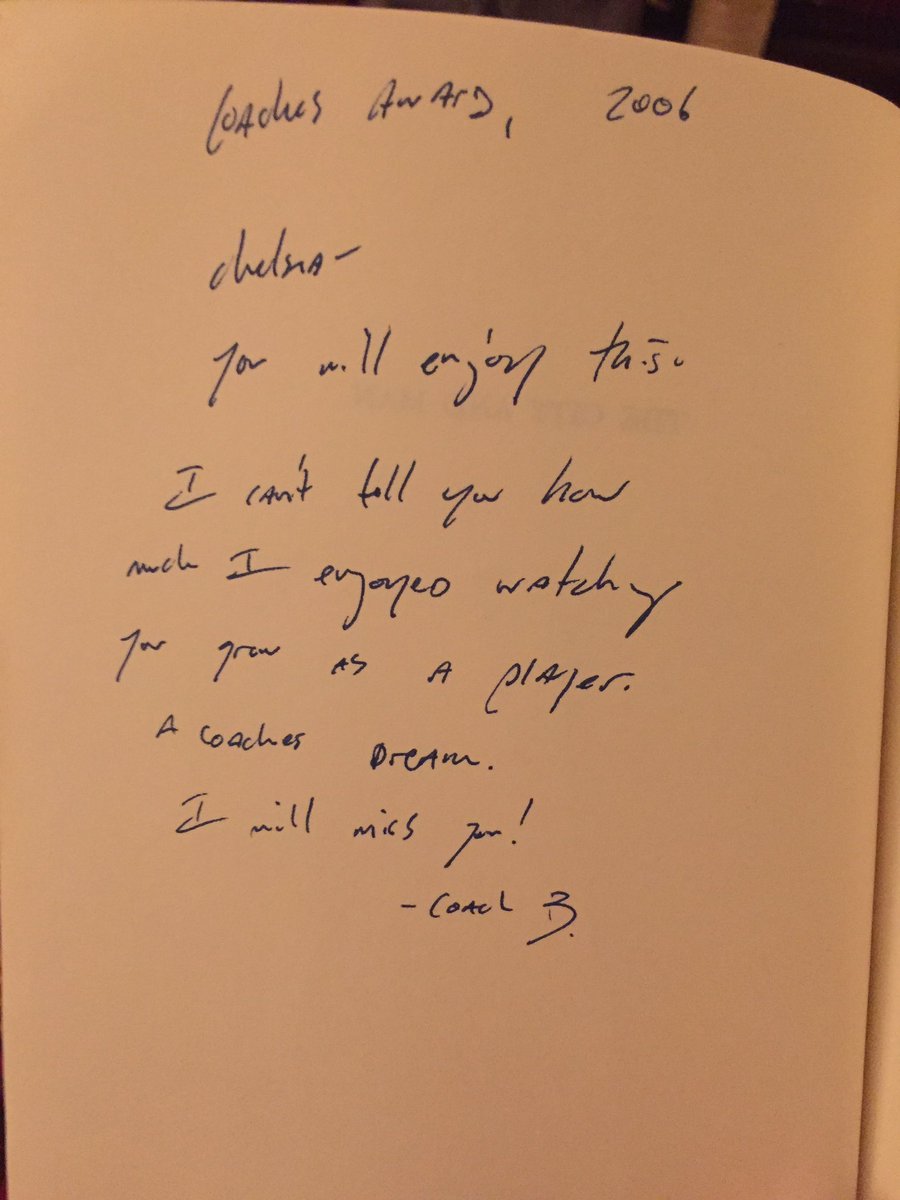 Coaches Award, 2006
Chelsea-
You will enjoy this.
I can't tell you how
much I enjoyed watching
you grow as a player.
A coaches Dream.
I will miss you!
- Coach B.